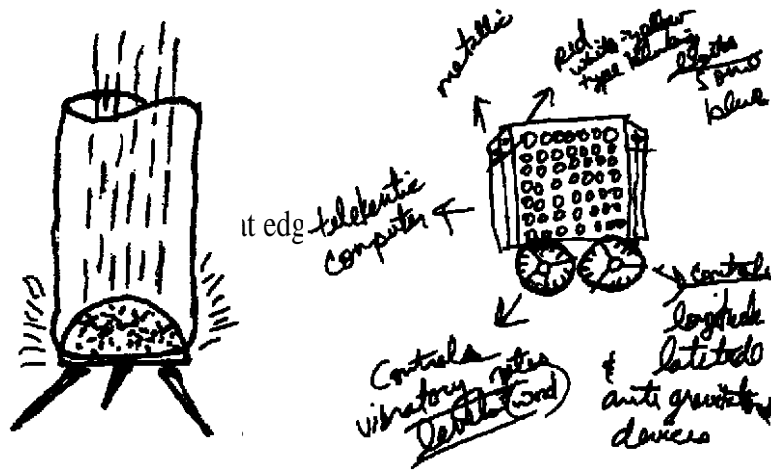 metallic
red
white yellow
type blinking
lights
some
blue
ut edg
telekentic
computer
controls
longitude
latitude
& anti gravitation
devices
Controls
vibratory rates
levels (word)